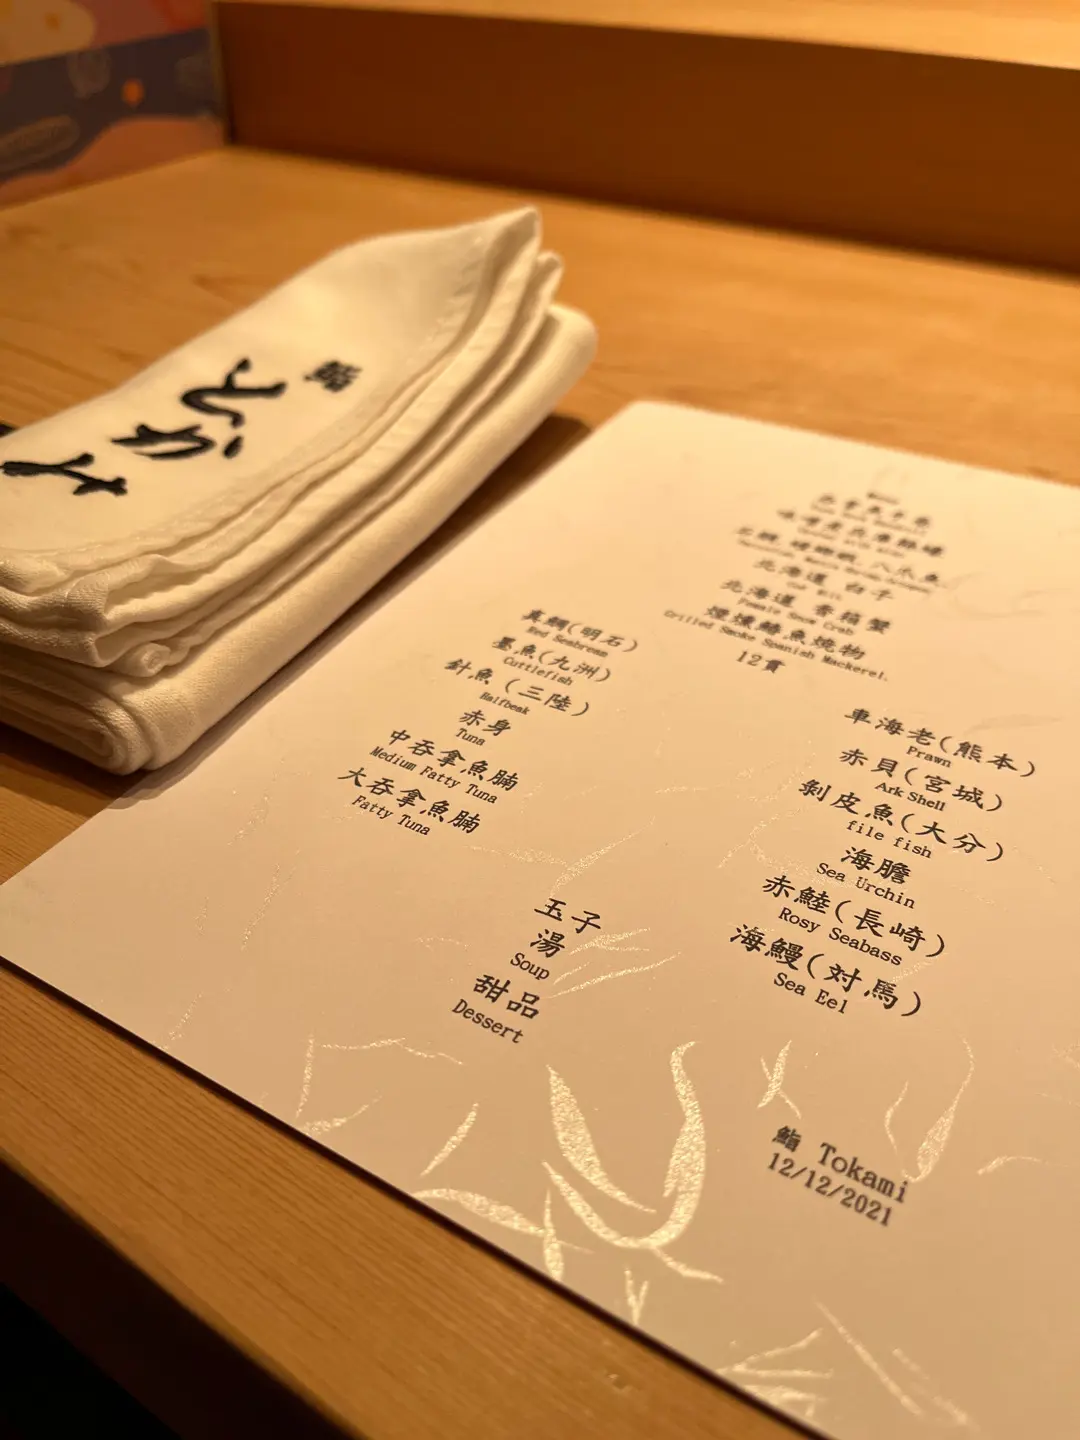 鮨
とかみ
Menu
味噌
八爪魚
北海道 白子
Cod Milt
北海道 香箱蟹
Female Snow Crab
煙燻鰆魚燒物
Grilled Smoke Spanish Mackerel.
12貫
真鯛(明石)
Red Seabream
墨魚(九洲)
Cuttlefish
針魚(三陸)
Halfbeak
赤身
Tuna
中吞拿魚腩
Medium Fatty Tuna
大吞拿魚腩
Fatty Tuna
車海老(熊本)
Prawn
赤貝(宮城)
Ark Shell
剝皮魚(大分)
file fish
海膽
Sea Urchin
赤鯥(長崎)
Rosy Seabass
海鰻(対馬)
Sea Eel
玉子
湯
Soup
甜品
Dessert
鮨 Tokami
12/12/2021